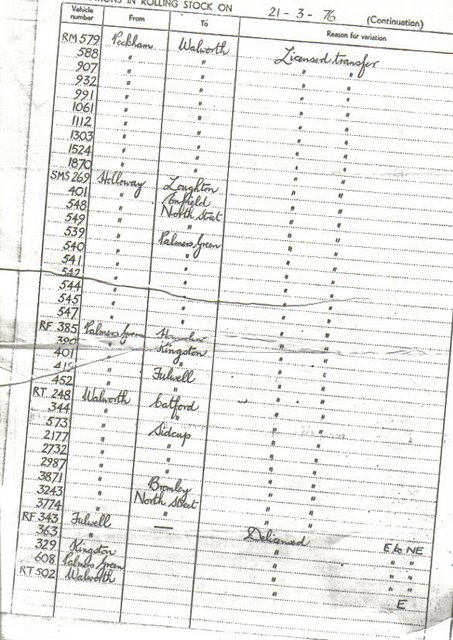 IN ROLLING STOCK ON 21-3-76 (Continuation)
Vehicle number From To Reason for variation
RM 579 Peckham Walworth Licensed transfer
588 " " " "
907 " " " "
932 " " " "
991 " " " "
1061 " " " "
1112 " " " "
1303 " " " "
1524 " " " "
1870 " " " "
SMS 269 Holloway Loughton " "
401 " Enfield " "
548 " North Street " "
549 " " " "
539 " Palmers Green " "
540 " " " "
541 " " " "
542 " " " "
544 " " " "
545 " " " "
547 " " " "
RF 385 Palmers Green Hounslow " "
390 " Kingston " "
401 " " " "
" " " "
452 " Fulwell " "
RT 248 Walworth Catford " "
344 " " " "
573 " Sidcup " "
2177 " " " "
2732 " " " "
2987 " " " "
3871 " Bromley " "
3243 " North Street " "
3774 " " " "
RF 343 Fulwell — Delicensed E to NE
363 " " " "
329 Kingston " " "
608 Palmers Green "
RT 502 Walworth " E